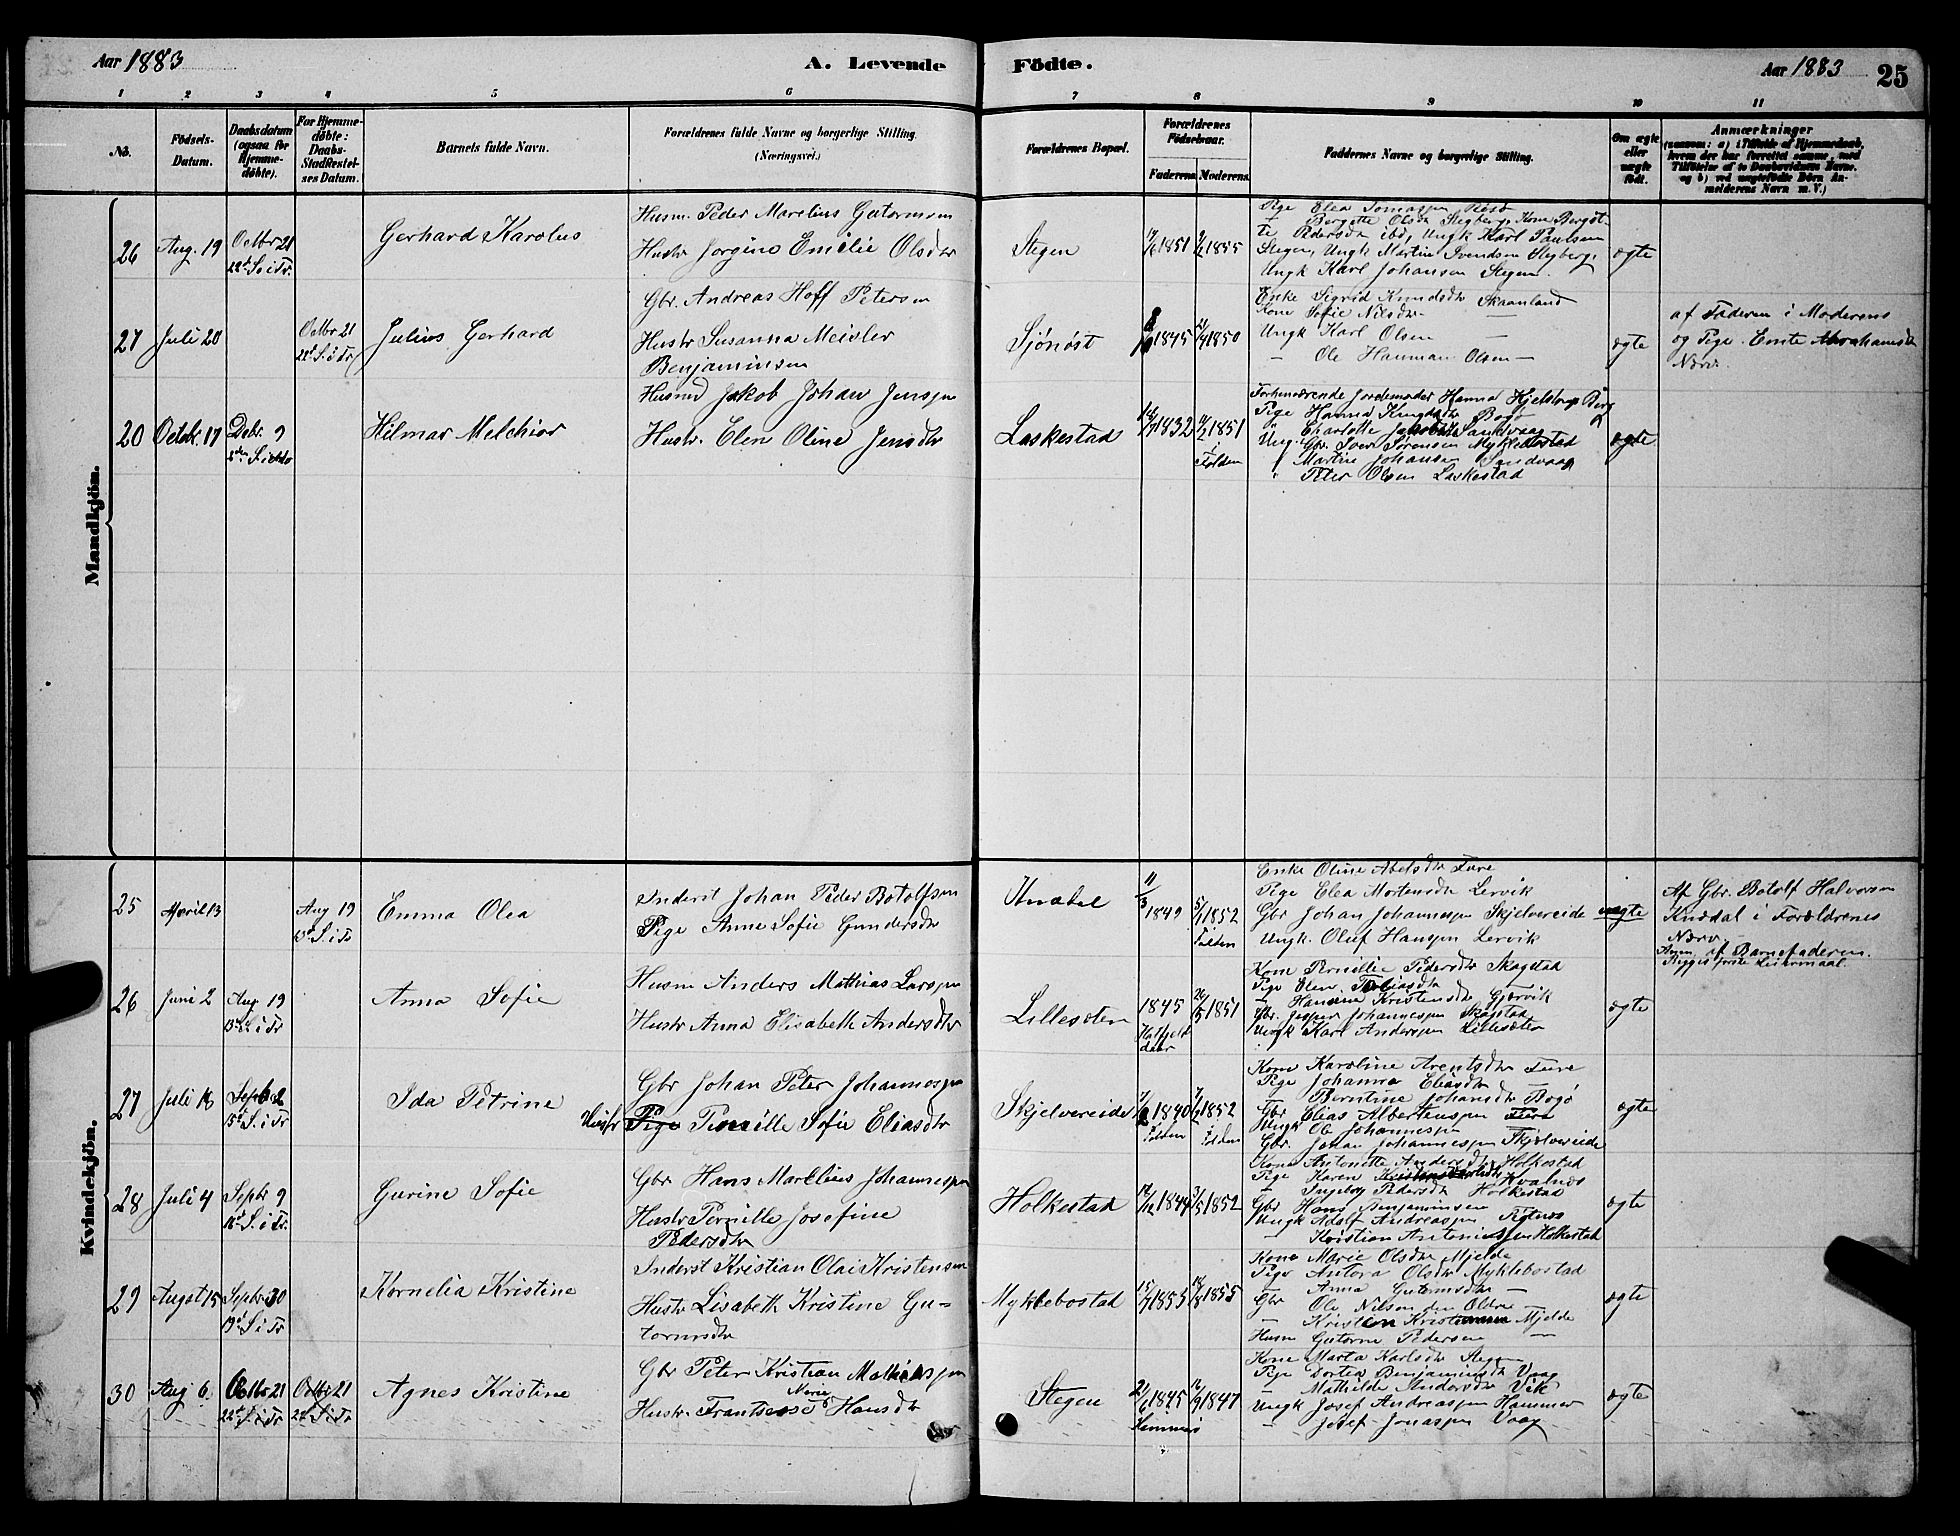 Aar 1883
A. Levende
Födte.
Aar 1883
25
1 2 3 4 5 6 7 8 9 10 11
No.
Födsels-
Datum.
Daabsdatum
(ogsaa for
Hjemme-
döbte).
For Hjemme-
döbte:
Daabs-
Stadfæstel-
ses Datum.
Barnets fulde Navn.
Forældrenes fulde Navne og borgerlige Stilling.
(Næringsvei.)
Forældrenes Bopæl.
Forældrenes
Födselsaar.
Faderens
Moderens.
Faddernes Navne og borgerlige Stilling.
Om ægte
eller
uægte
födt.
Anmærkninger
(saasom: a) i Tilfælde af Hjemmedaab,
hvem der har forrettet samme, med
Tilföielse af to Daabsvidners Navne.
og b) ved uægtefödte Börn An-
melderens Navn m. V.)
Mandkjön.
26
Aug. 19
Octbr 21
22d S. i Tr.
Gerhard Karolus
Husm Peder Marelius Gutormsen
Hustr Jorgine Emilie Olsdtr
Stegen
1851
1855
Pige Elea
Bergitte Olsdtr Stegberg, Kone Bergit-
te Pedersdtr ibd, Ungk Karl Paulsen
Stegen, Ungk Martin Svendsen Stegberg,
Ungk Karl Johansen Stegen.
ægte
27
Juli 20
Octbr 21
22d S. i Tr
Julius Gerhard
Gbr. Andreas Hoff Petersen
Hustr Susanna Meisler
Benjaminsen
Sjönöst
1845
1850
Enke Sigrid Knudsdtr Skaanland
Kone Sofie Nilsdtr —
Ungk Karl Olsen —
— Ole Hanman Olsen —
ægte
af Faderen i Moderens
og Pige Ente Abrahamsdtr
Nærv.
Octob. 17
Debr. 9
Hilmar Melchior
Husmd Jakob Johan Jenssen
Hustr. Elen Oline Jensdtr
Laskestad
1832
1851
Folden
Forhenværende Jordemoder Hanna Hjelstrup Berg
Pige Hanna Knudsdtr Borg
Charlotte
Gbr. Iver Sørensen Myklebostad
Martin Johansen Sandvaag
Peter Olsen Laskestad
ægte
Kvindekjön.
25
April 13
Aug 19
13d S. i Tr
Emma Olea
Inderst Johan Peder Botolfsen
Pige Anne Sofie Gundersdtr
11/3 1849
5/1 1852
Folden
Enke Oline Abelsdtr Fure
Pige Elea Mortensdtr Lervik
Gbr Johan Johannessen Skjelvereide
Ungk. Oluf Hanssen Lervik
uægte
Af Gbr. Botolf Halvorsen
Knædal i Forældrenes
Nærv.
Anm. af Barnefaderen.
Begges første Leiermaal.
26
Juni 2
Aug 19
13d S. i Tr
Anna Sofie
Husm Anders Mathias Larssen
Hustr Anna Elisabeth Andersdtr
Lillesæten
1845
Hatfjeld
dalen
1851
Kone Pernille Pedersdtr Skagstad
Pige Elen Tobiasdtr
— Hansine Kristensdtr Gjærvik
Gbr. Jesper Johannessen Skagstad
Ungk Karl Anderssen Lillesæten
ægte
27
Juli 18
Septb 2
15d S. i Tr
Ida Petrine
Gbr Johan Peter Johannessen
Hustr Pige Pernille Sofie Eliasdtr
Skjelvereide
1840
Folden
1852
Folden
Kone Karoline Arentsdtr Fure
Pige Johanna Eliasdtr
Berntine Johansdtr Bogø
Gbr Elias Albertsen Fure
Ungk Ole Johannessen
Gbr. Johan Johannessen Skjelvereide
ægte
28
Juli 4
Septbr 9
16d S. i Tr
Gurine Sofie
Gbr Hans Marelius Johannessen
Hustr Pernille Josefine
Pedersdtr
Holkestad
1852
Kone Antonette Andersdtr Holkestad
Pige Karen Hvalnæs
— Ingeborg Pedersdtr Holkestad
Gbr Hans Benjaminsen
Ungk Adolf Andreassen
— Kristian Antoniussen Holkestad
ægte
29
August 15
Septbr 30
19d S. i Tr
Kornelia Kristine
Inderst Kristian Olai Kristensen
Hustr Lisabeth Kristine Gu-
tormsdtr
Myklebostad
1855
1855
Kone Marie Olsdtr Mjelde
Pige Antora Olsdtr Myklebostad
— Anna Gutormsdtr —
Gbr Ole Nilsen den Eldre —
— Kristen Mjelde
Husm Gutorm Pedersen —
ægte
30
Aug 6
Octbr 21
22d S. i Tr
Octbr 21
22d S. i Tr
Agnes Kristine
Gbr Peter Kristian Mathiassen
Marie
Hustr. Frantsese Hansdtr
Stegen
1845
Hemnæs
1847
Kone Marta Karlsdtr Stegen
Pige Dortea Benjaminsdtr Vaag
— Mathilde Andersdtr Vik
Ungk Josef Andreassen Hammer
— Josef Jonassen Vaag
ægte